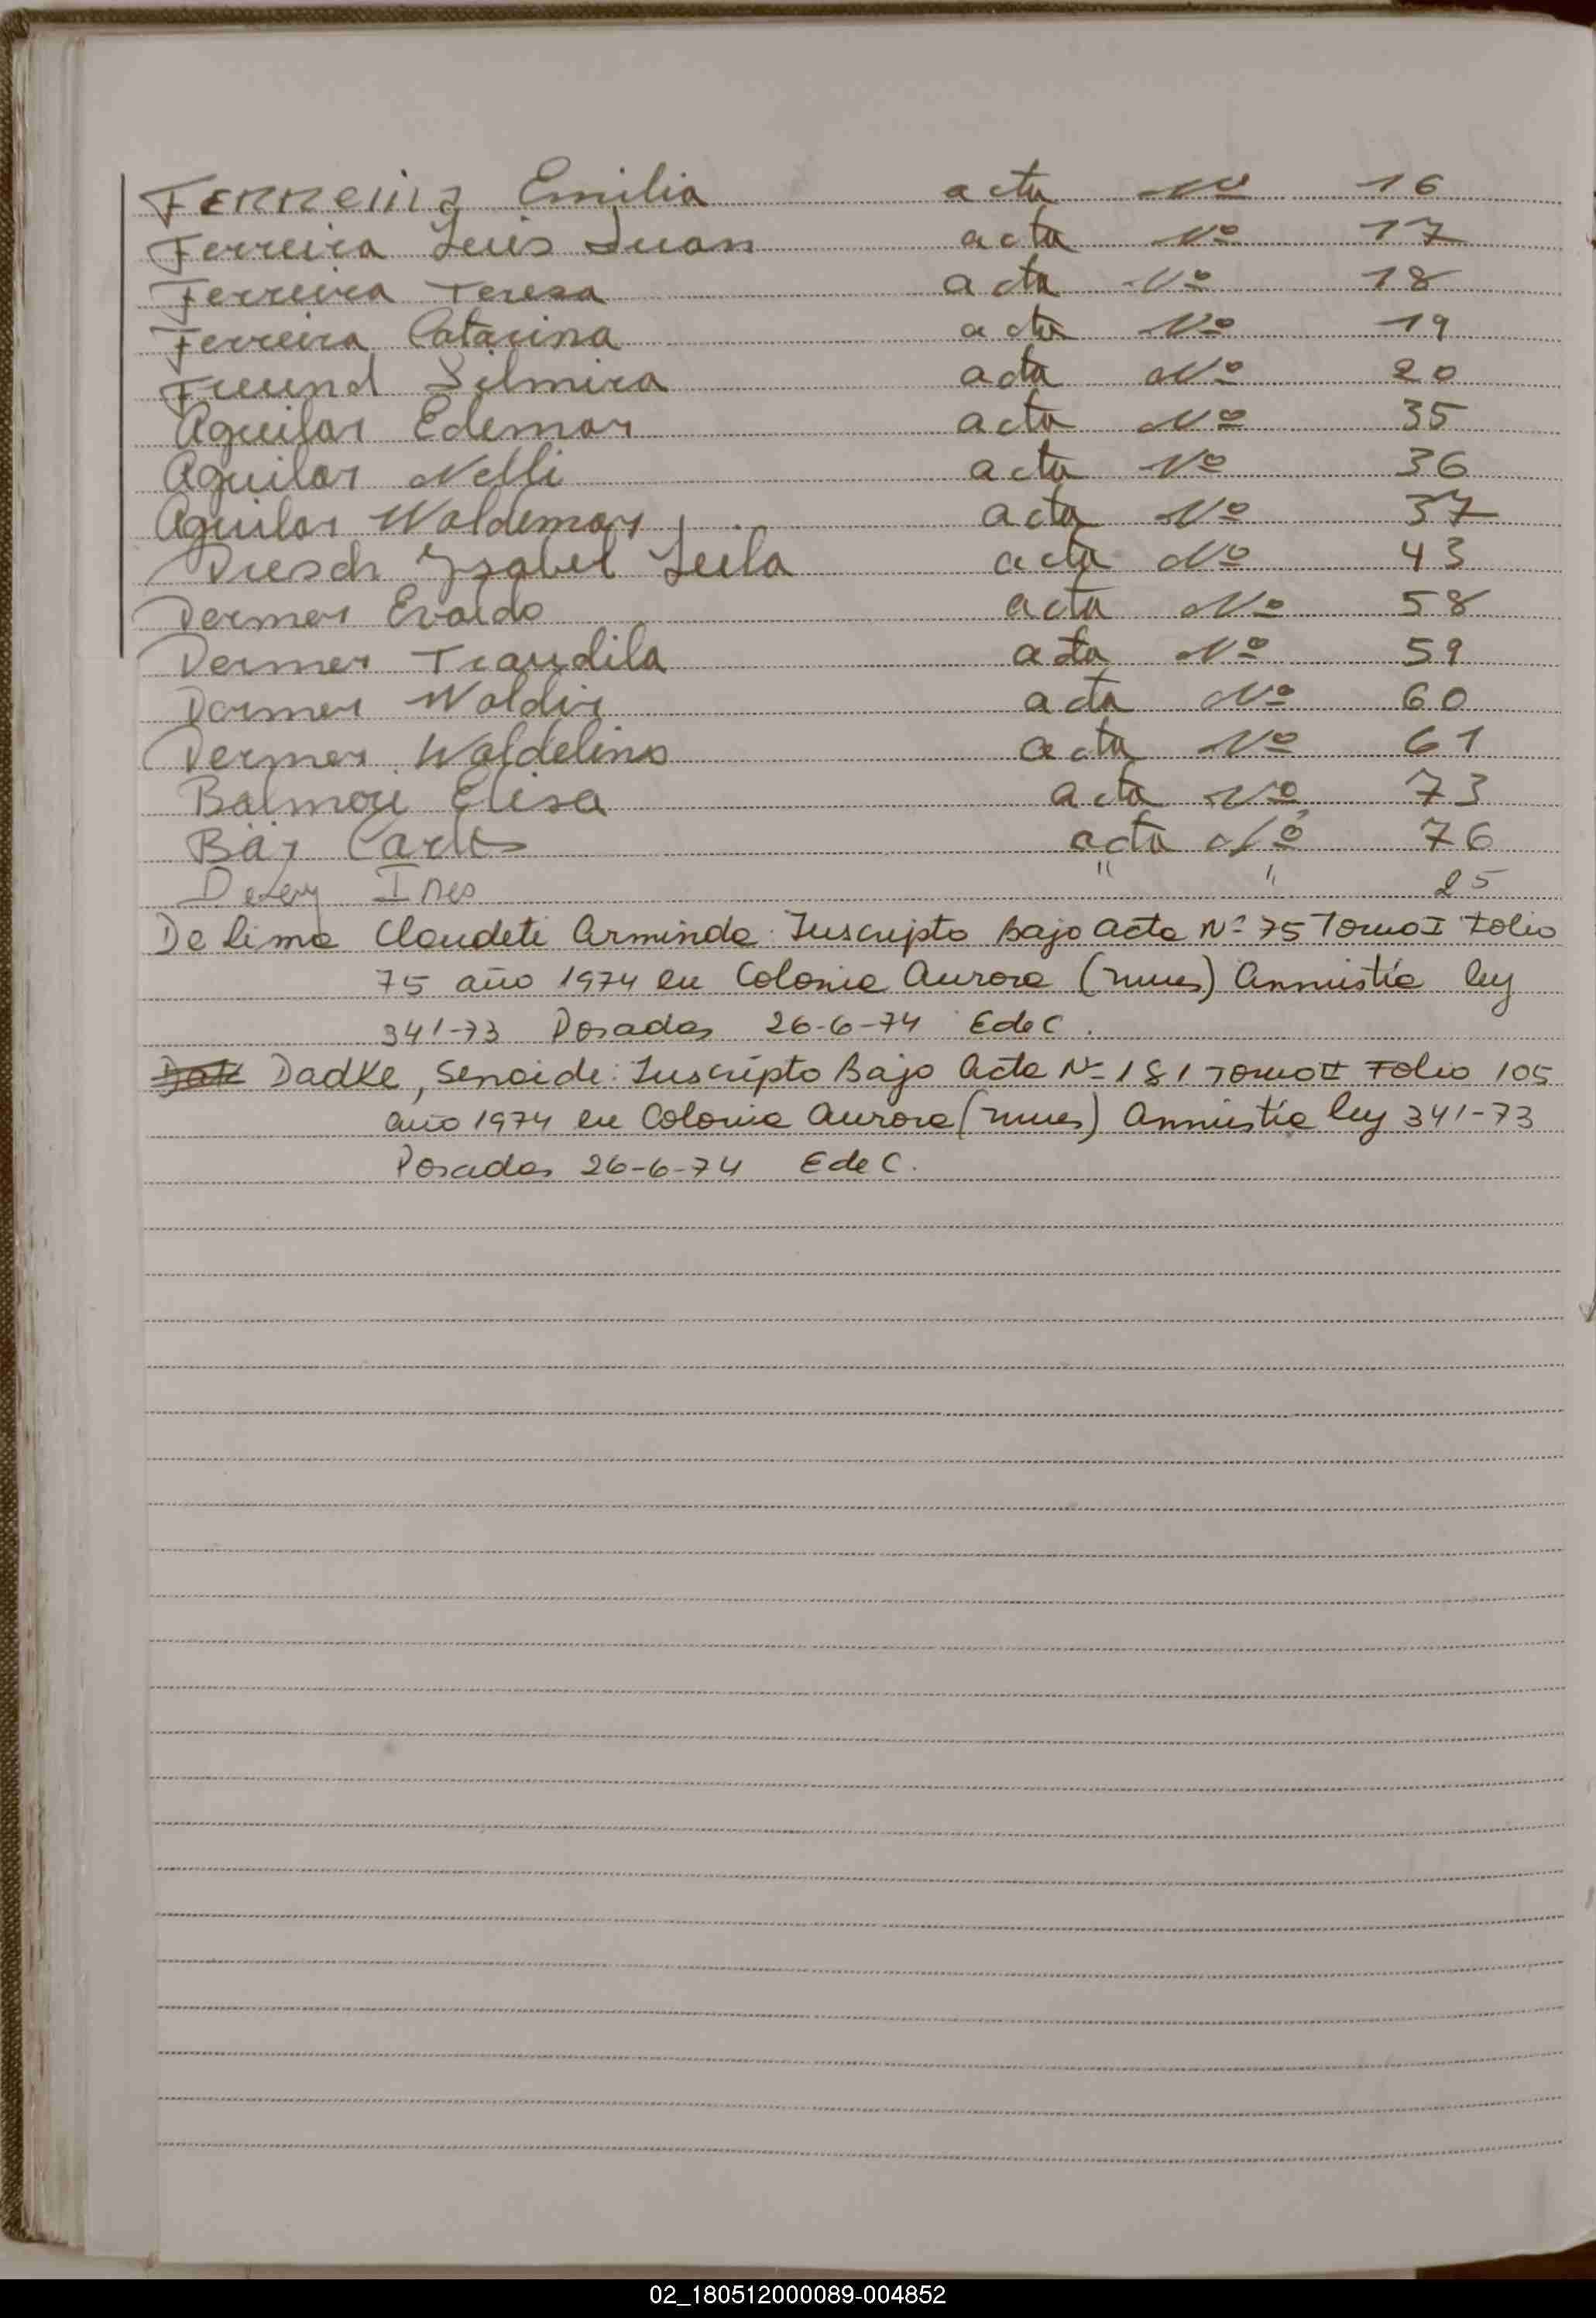 Ferreira Emilia acta Nº 16
Ferreira Luis Juan acta Nº 17
Ferreira Teresa acta Nº 18
Ferreira Catarina acta Nº 19
Freund Silmira acta Nº 20
Aguilar Edemar acta Nº 35
Aguilar Nelli acta Nº 36
Aguilar Waldemar acta Nº 37
Diesch Ysabel Leila acta Nº 43
Dermer Evaldo acta Nº 58
Dermer Traudila acta Nº 59
Dermer Waldir acta Nº 60
Dermer Waldelino acta Nº 61
Balmori Elisa acta Nº 73
Báz Carlos acta Nº 76
Ines " " 25
De lima Claudete Arminda: Inscripto Bajo acta Nº 75 Tomo I Folio
75 año 1974 en Colonia Aurora (mnes) Amnistía ley
341-73 Posadas 26-6-74 EdeC.
Dadke, Senaide: Inscripto Bajo Acta Nº 181 Tomo II Folio 105
año 1974 en Colonia Aurora (mnes) Amnistía ley 341-73
Posadas 26-6-74 EdeC.
02_180512000089-004852